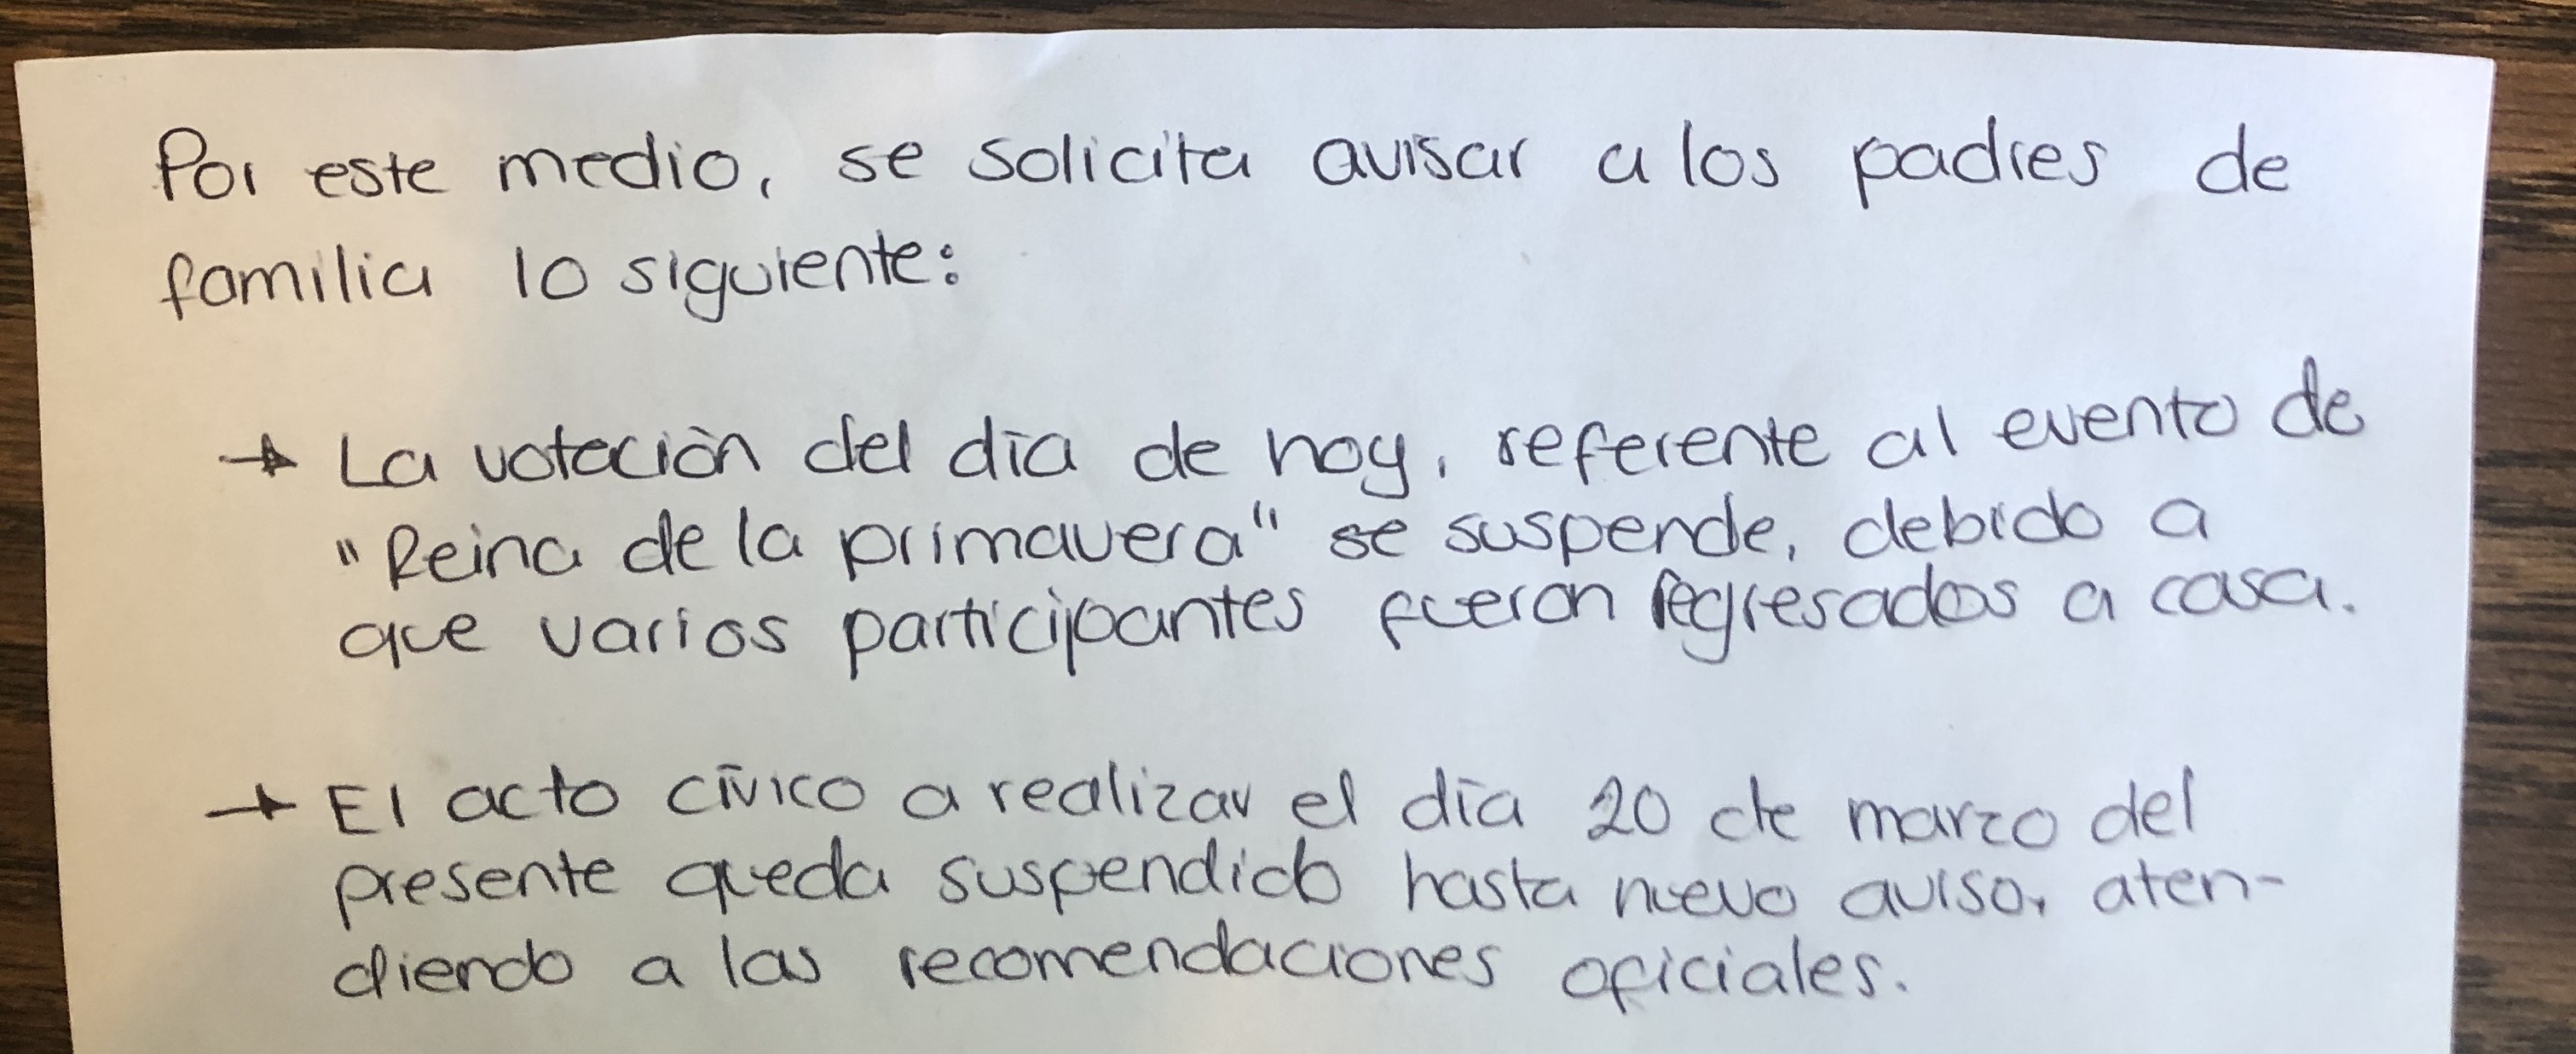 Por este medio, se solicita avisar a los padres de
familia lo siguiente:
→ La votación del día de hoy, referente al evento de
"Reina de la primavera" se suspende, debido a
que varios participantes fueron regresados a casa.
→ El acto cívico a realizar el día 20 de marzo del
presente queda suspendido hasta nuevo aviso, aten-
diendo a las recomendaciones oficiales.